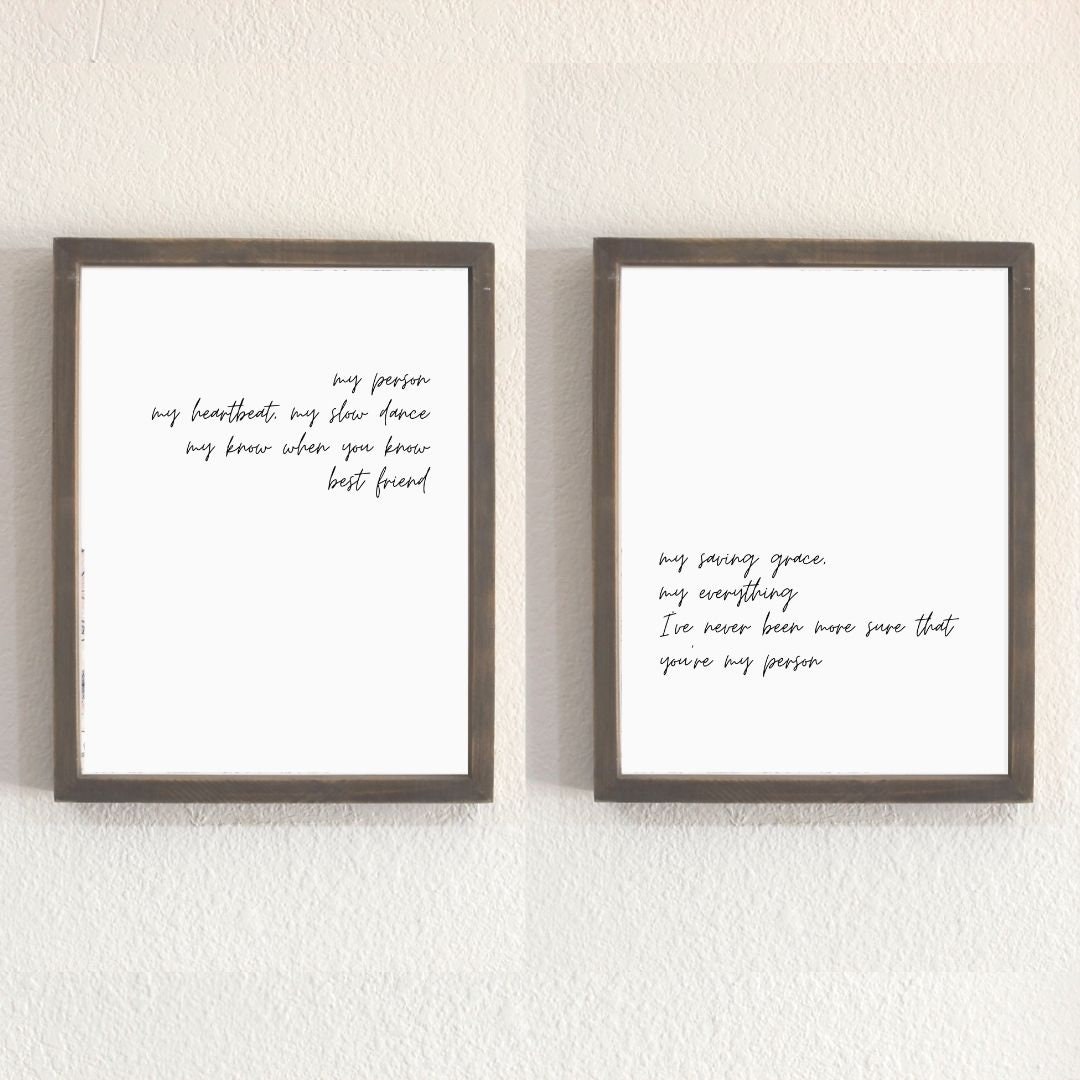 my person
my heartbeat. my slow dance
my know when you know
best friend
my saving grace.
my everything
I've never been more sure that
you're my person